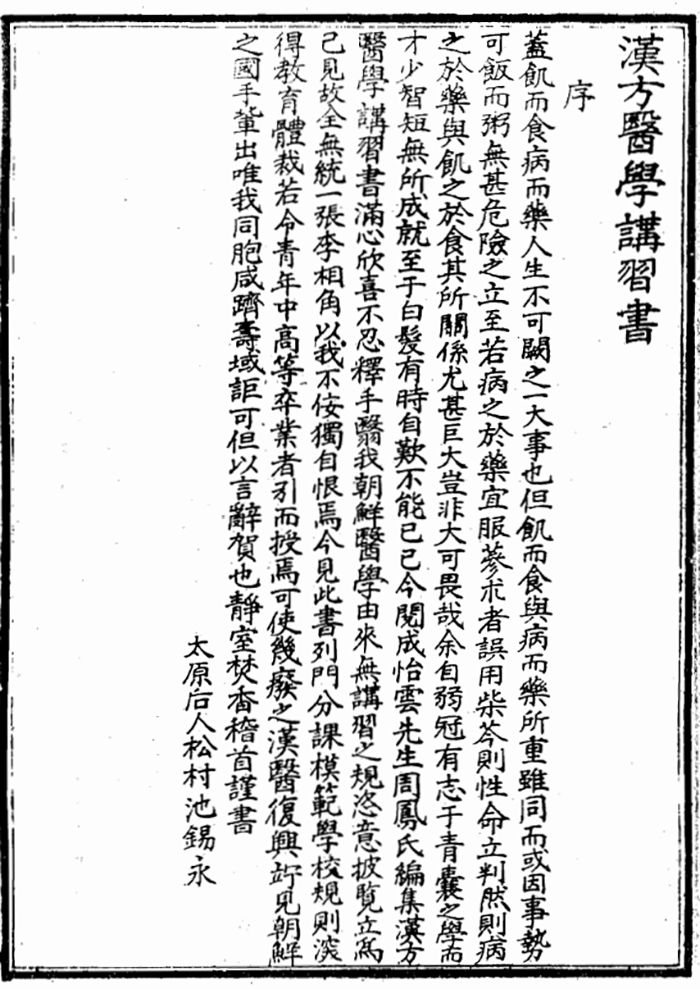 漢方醫學講習書
序
蓋飢而食病而藥人生不可闕之一大事也但飢而食與病而藥所重雖同而或因事勢
可飯而粥無甚危險之立至若病之於藥宜服蔘朮者誤用柴芩則性命立判然則病
之於藥與飢之於食其所關係尤甚巨大豈非大可畏哉余自弱冠有志于青囊之學而
才少智短無所成就至于白髮有時自歎不能已已今閱成怡雲先生周鳳氏編集漢方
醫學講習書滿心欣喜不忍釋手翳我朝鮮醫學由來無講習之規恣意披覧立爲
己見故全無統一張李相角以我不侫獨自恨焉今見此書列門分課模範學校規則深
得教育體裁若令青年中高等卒業者引而授焉可使幾癈之漢醫復興竚見朝鮮
之國手輩出唯我同胞咸躋壽域詎可但以言辭賀也靜室焚香稽首謹書
太原后人松村池錫永